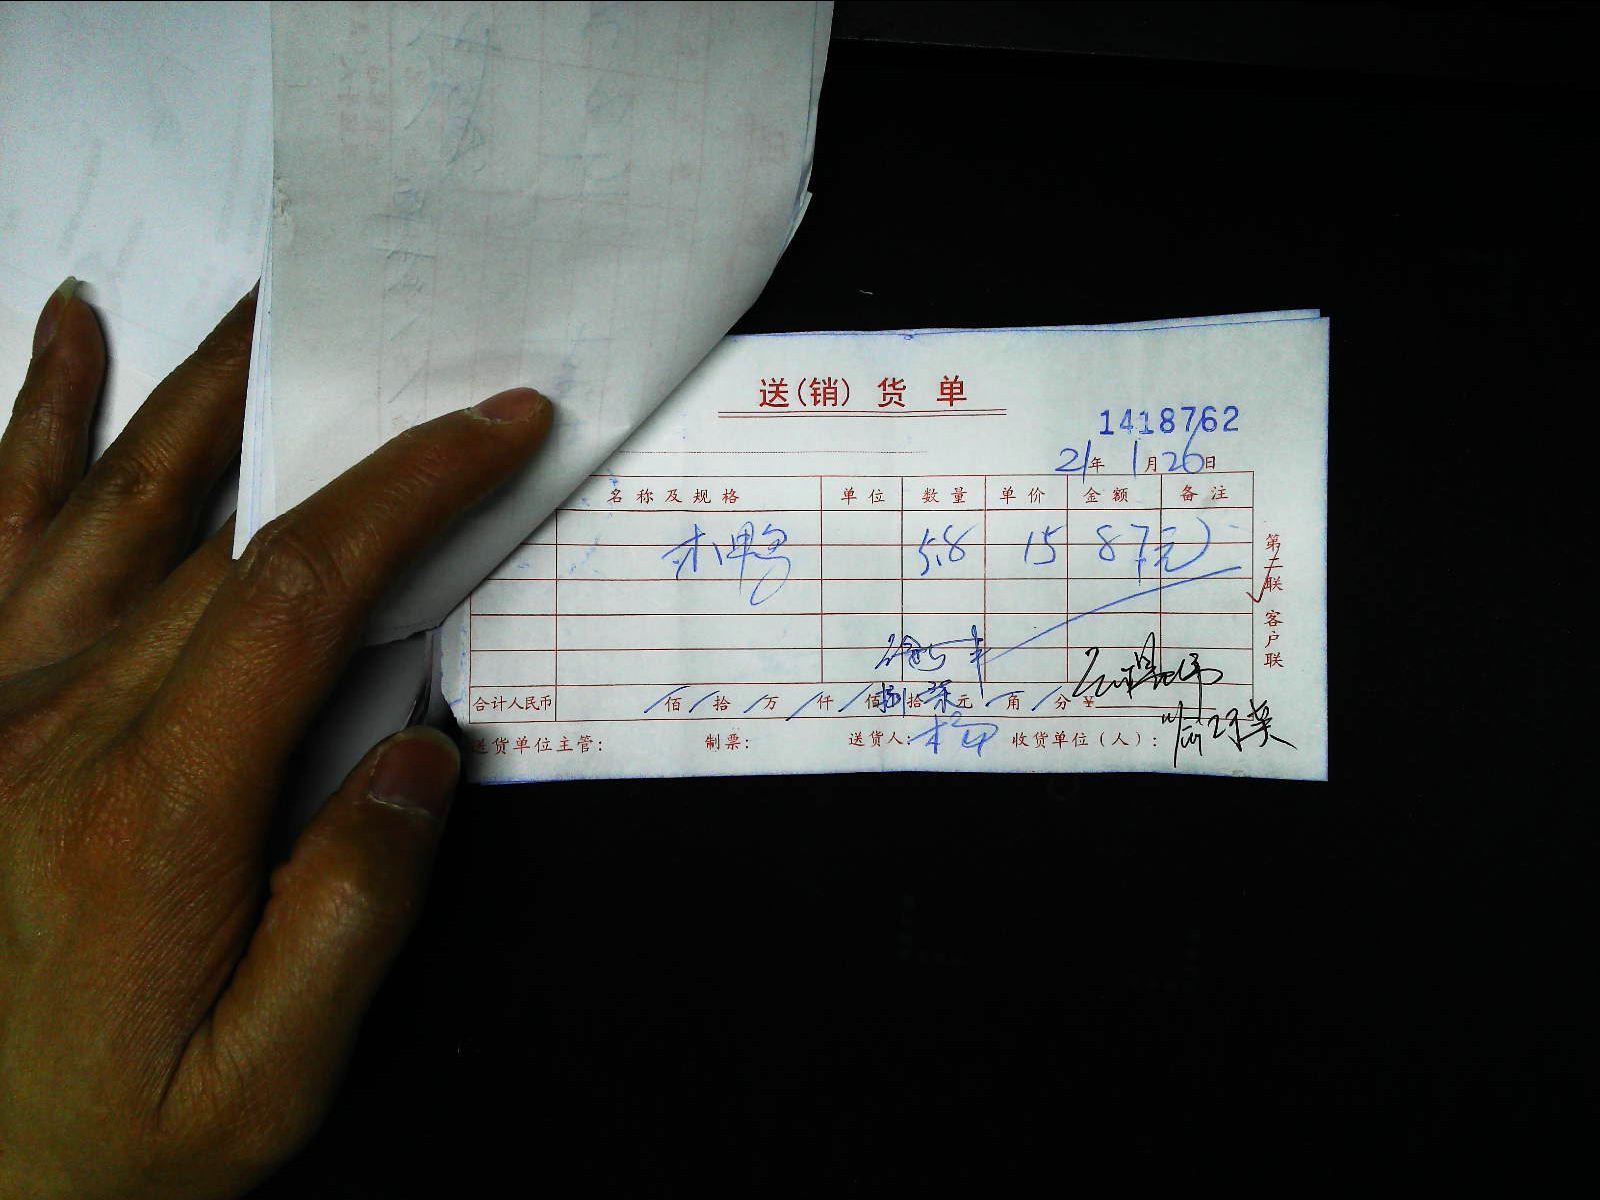 送(销)货单
1418762
21年1月26日
名称及规格 单位 数量 单价 金额 备注
鸭 5.8 15 87元
第二联 客户联
合计人民币 佰 拾 万 仟 佰捌拾柒元 角 分 ¥
送货单位主管: 制票: 送货人: 收货单位(人):